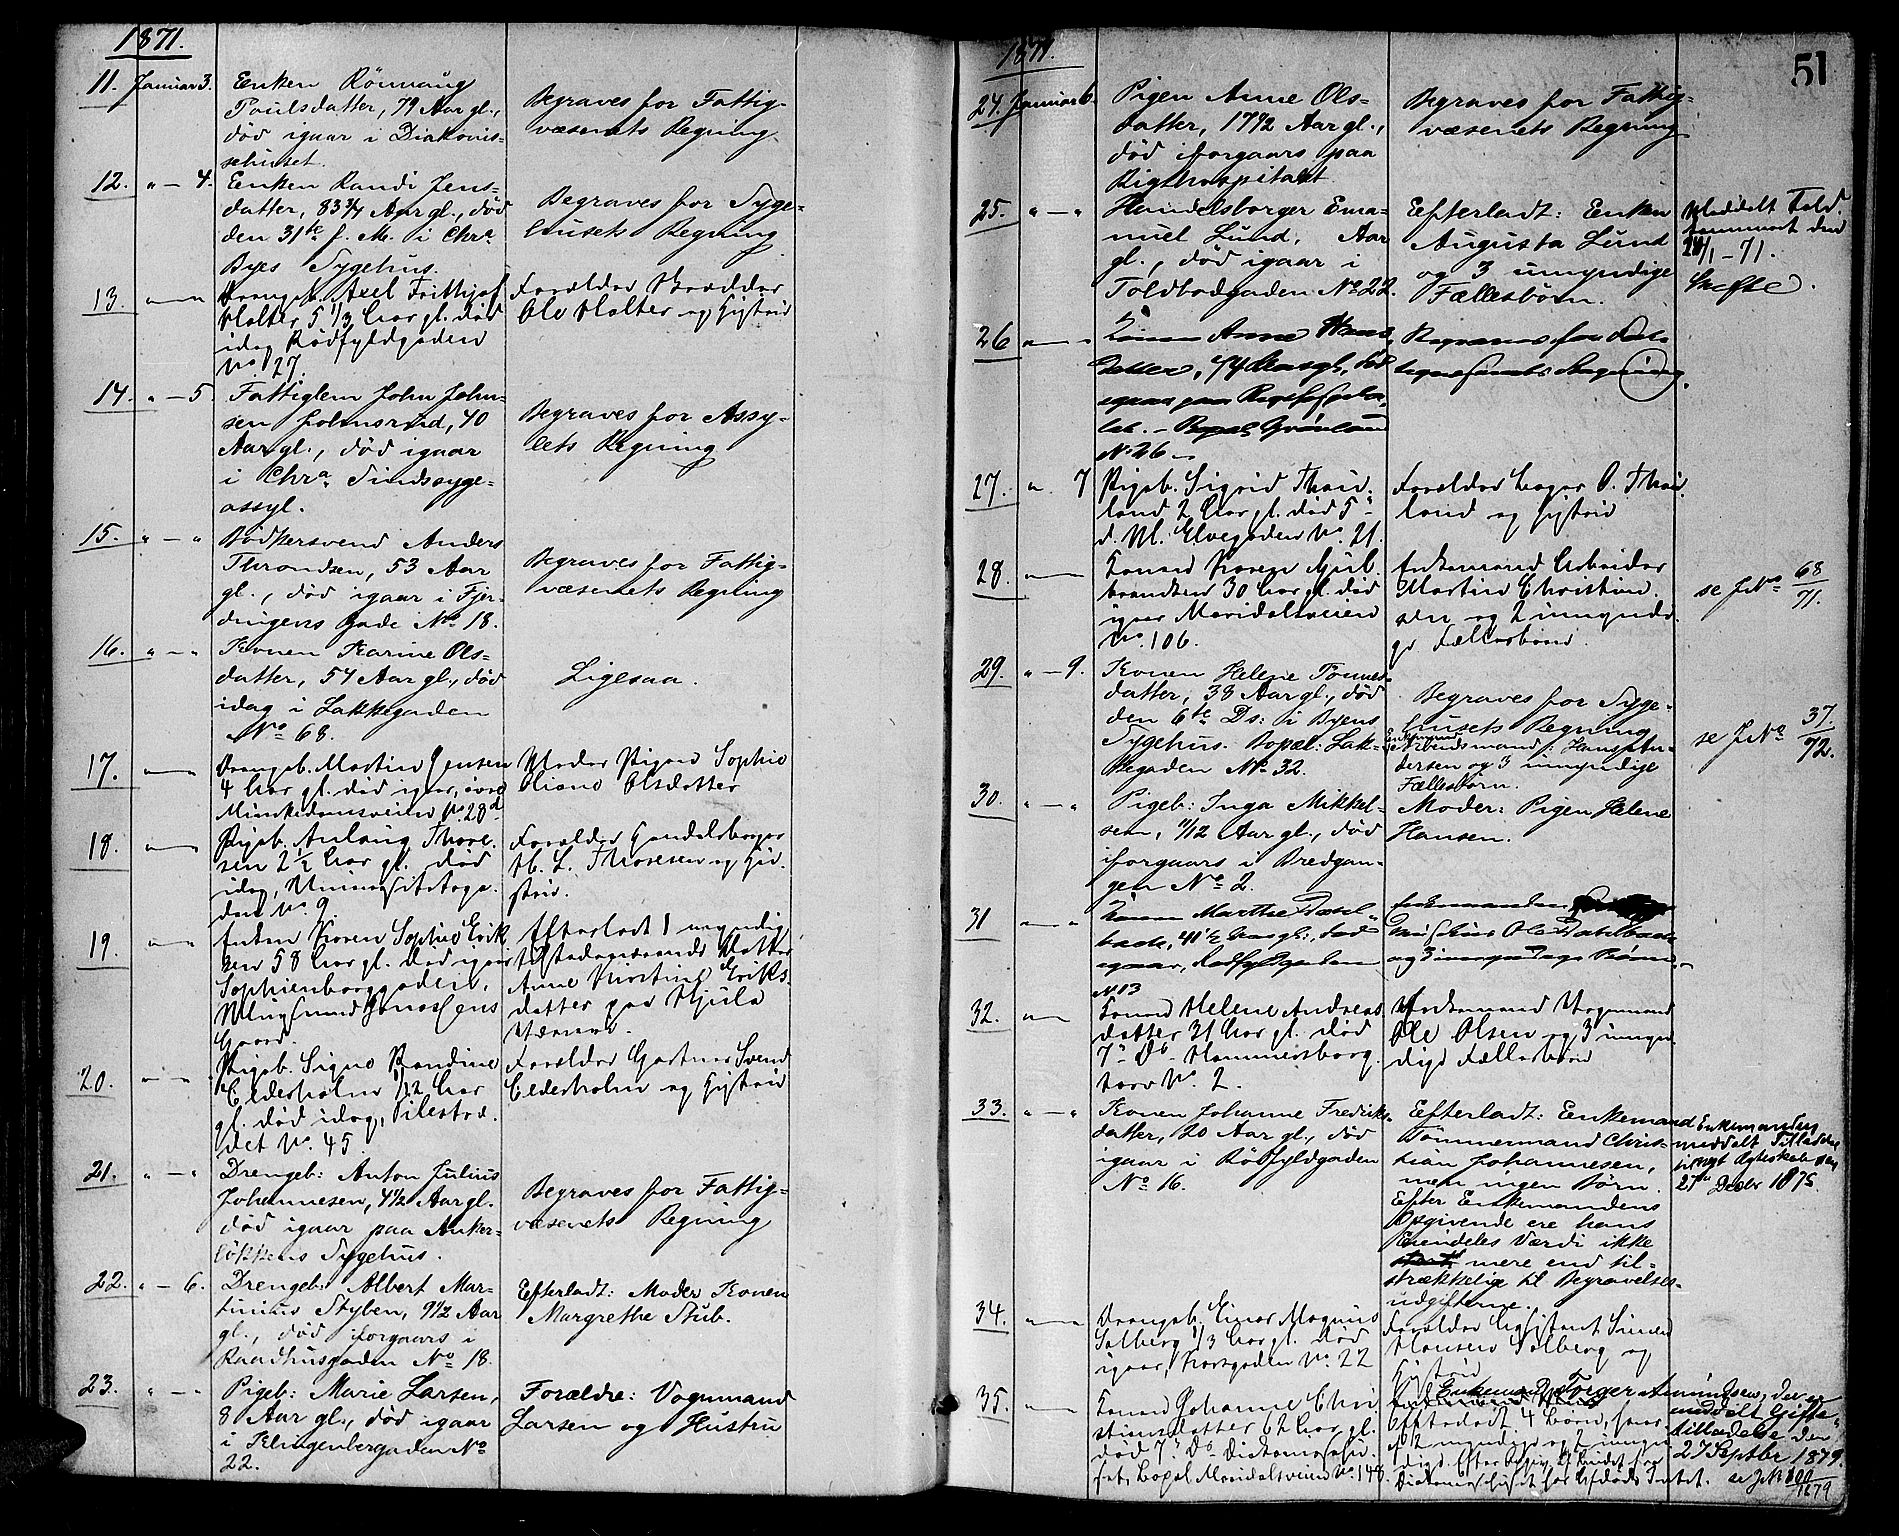 1871.
11. Januar 3. Enken Rönnaug
Poulsdatter, 79 Aar gl.,
död igaar i Diakonis-
sehuset.
Begraves for Fattig-
væsenets Regning
12. " - 4. Enken Randi Jens-
datter, 83 3/4 Aar gl., död
den 31te f. M. i Chra.
Byes Sygehus.
Begraves for Syge-
husets Regning
13. Drengeb. Axel Frithjof
Holter 5 1/3 Aar gl. död
idag Rödfyldgaden
No. 27.
Forældre
Ole Holter og Hustru
14. " - 5 Fattiglem John John-
sen Holmsrud, 40
Aar gl., död igaar
i Chra. Sindssyge-
assyl.
Begraves for Assy-
lets Regning
15. " - " Bödkersvend Anders
Throndsen, 53 Aar
gl., död igaar i Fjer-
dingens Gade No. 18.
Begraves for Fattig-
væsenets Regning
16. " - " Konen Karine Ols-
datter, 54 Aar gl., död
idag i Lakkegaden
No. 68.
Ligesaa.
17. Drengeb. Martin Jensen
4 Aar gl. död igaar, övre
No. 28d
Moder Pigen Sophie
Oliane Olsdatter
18. Pigeb. Anlaug Thore-
sen 2 1/2 Aar gl. död
idag, Universitetsga-
den No. 9
Forældre Handelsborger
H. L. Thoresen og Hu-
stru.
19. Enken Karen Sophie Erik
sen 58 Aar gl. död igaar
Sophienberggaden,
Gaard.
Efterladt 1 umyndig
Datter
Anne Kirstine Eriks-
datter paa Hjula
Væveri.
20. Pigeb. Signe Randine
Elderholm 1/12 Aar
gl. död idag, Pilestræ-
det No. 45
Forældre Gartner Svend
Elderholm og Hustru
21. " - " Drengeb: Anton Julius
Johannesen, 4 1/2 Aar gl.
död igaar paa Anker-
lökkens Sygehus.
Begraves for Fattig-
væsenets Regning
22. " - 6. Drengeb: Albert Mar-
tinius Styben, 9 1/2 Aar
gl., död iforgaars i
Raadhusgaden No. 18.
Efterladt: Moder Konen
Margrethe Stub.
23. " - " Pigeb: Marie Larsen,
8 Aar gl., död igaar
i Klingenberggaden No.
22.
Forældre: Vognmand
Larsen og Hustru
1871.
51
24. Januar 6. Pigen Anne Ols-
datter, 17 7/12 Aar gl.,
död iforgaars paa
Rigshospitalet
Begraves for Fattig-
væsenets Regning
25. " - " Handelsborger Ema-
nuel Lund, Aar
gl., död igaar i
Toldbodgaden No. 22.
Efterladt: Enken
Augusta Lund
og 3 umyndige
Fællesbörn.
Meddelt
den
24/1 - 71.
Skifte.
26 Konen Anne Hans
datter, 74 Aar gl., död
igaar paa Rigshospita-
let. - Bopæl Grönland
N. 26
Begraves for
Regning.
27. " 7 Pigeb. Sigrid
land 2 Aar gl. död 5te
d. M. Elvegaden No. 21.
Forældre
land og Hustru
28. Konen Karen Gul
brandsen 30 Aar gl. död
igaar Maridalsveien
No. 106.
Enkemand Arbeider
Martin Christian-
sen og 2 umyndi-
ge Fællesbörn.
se J No. 68/71.
29. " - 9. Konen Helene Tönnes-
datter, 38 Aar gl., död
den 6te Ds: i Byens
Sygehus. Bopæl: Lak-
kegaden No. 32.
Begraves for Syge-
husets Regning
Enkemand
Arbeidsmand Hans Pe-
dersen og 3 umyndige
Fællesbörn.
se J No. 37/72.
30. " - " Pigeb: Inga Mikkel-
sen, 11/12 Aar gl., död
iforgaars i Bredgan-
gen No. 2.
Moder: Pigen Helene
Hansen.
31 Konen Marthe
41 1/2 Aar gl., död
igaar, Rödfyldgaden
N. 13
Enkemanden
Ole
og 3 umyndige Börn.
32. Konen Helene Andreas
datter 31 Aar gl. död
7de Ds. Hammersborg
torv No. 2.
Enkemand Vognmand
Ole Olsen og 3 umyn
dige Fællesbörn
33. " - " Konen Johanne Fredriks-
datter, 20 Aar gl., död
igaar i Rödfyldgaden
No. 16.
Efterladt: Enkemand
Tömmermand Chris-
tian Johannesen,
men ingen Börn.
Efter Enkemandens
Opgivende ere hans
Eiendeles Værdi ikke
mere end til-
strækkelig til Begravelses-
udgifterne.
Enkemanden
meddelt Tilladelse
til nyt Ægteskab den
27de Decbr 1875.
34. Drengeb. Einar Magnus
Solberg 1/3 Aar gl. död
igaar, Torvgaden No. 22
Forældre
Hansen Solberg og
Hustru
35. Konen Johanne Chri
stiansdatter 62 Aar gl.
död 7de Ds. Diakonissehu-
set, Bopæl Maridalsveien No. 148.
Enkemand Torger Amundsen, der er
meddelt Gifte-
tilladelse den
27 Septbr 1879.
Efterladt 4 Börn, hvor
af 2 myndige og 2 umyn
dige.
Diakonissehuset
se J N
1879